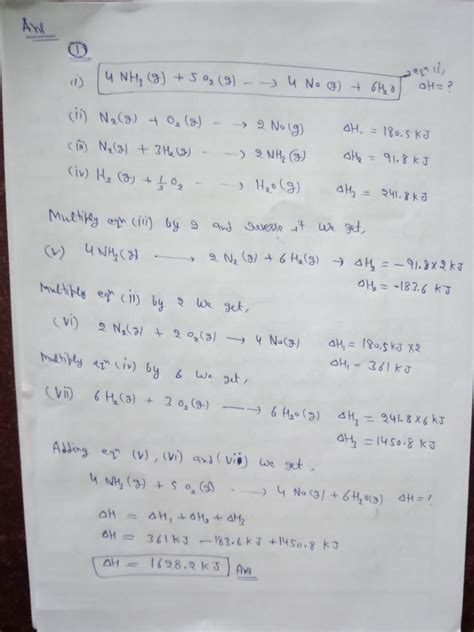 Ans
①
eqn (i)
(i) 4 NH3(g) + 5 O2(g) ---> 4 No(g) + 6H2O ΔH = ?
(ii) N2(g) + O2(g) ---> 2 No(g) ΔH1 = 180.5 kJ
(iii) N2(g) + 3H2(g) ---> 2 NH3(g) ΔH2 = 91.8 kJ
(iv) H2(g) + 1/2 O2 ---> H2O(g) ΔH3 = 241.8 kJ
Multiply eqn (iii) by 2 and reverse it We get,
(v) 4 NH3(g) ⟶ 2 N2(g) + 6 H2(g) → ΔH2 = -91.8 x 2 kJ
ΔH2 = -183.6 kJ
Multiply eqn (ii) by 2 We get,
(vi) 2 N2(g) + 2 O2(g) ⟶ 4 No(g) ΔH1 = 180.5 kJ x2
ΔH1 = 361 kJ
Multiply eqn (iv) by 6 We get,
(vii) 6 H2(g) + 3 O2(g) ⟶ 6 H2O(g) ΔH3 = 241.8 x6 kJ
ΔH3 = 1450.8 kJ
Adding eqn (v), (vi) and (vii) We get,
4 NH3(g) + 5 O2(g) ---> 4 No(g) + 6H2O(g) ΔH = ?
ΔH = ΔH1 + ΔH2 + ΔH3
ΔH = 361 kJ - 183.6 kJ + 1450.8 kJ
ΔH = 1628.2 kJ Ans